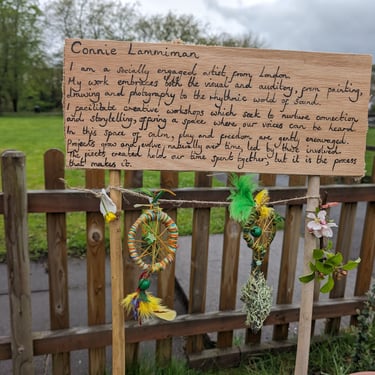 Connie Lamniman
I am a socially engaged artist, from London.
My work embraces both the visual and auditory, from painting,
drawing and photography to the rhythmic world of sound.
I facilitate creative workshops which seek to nurture connection
and storytelling, offering a space where our voices can be heard.
In this space of calm, play and freedom are gently encouraged.
Projects grow and evolve, naturally over time, led by those involved.
The pieces created hold our time spent together but it is the process
that makes it.